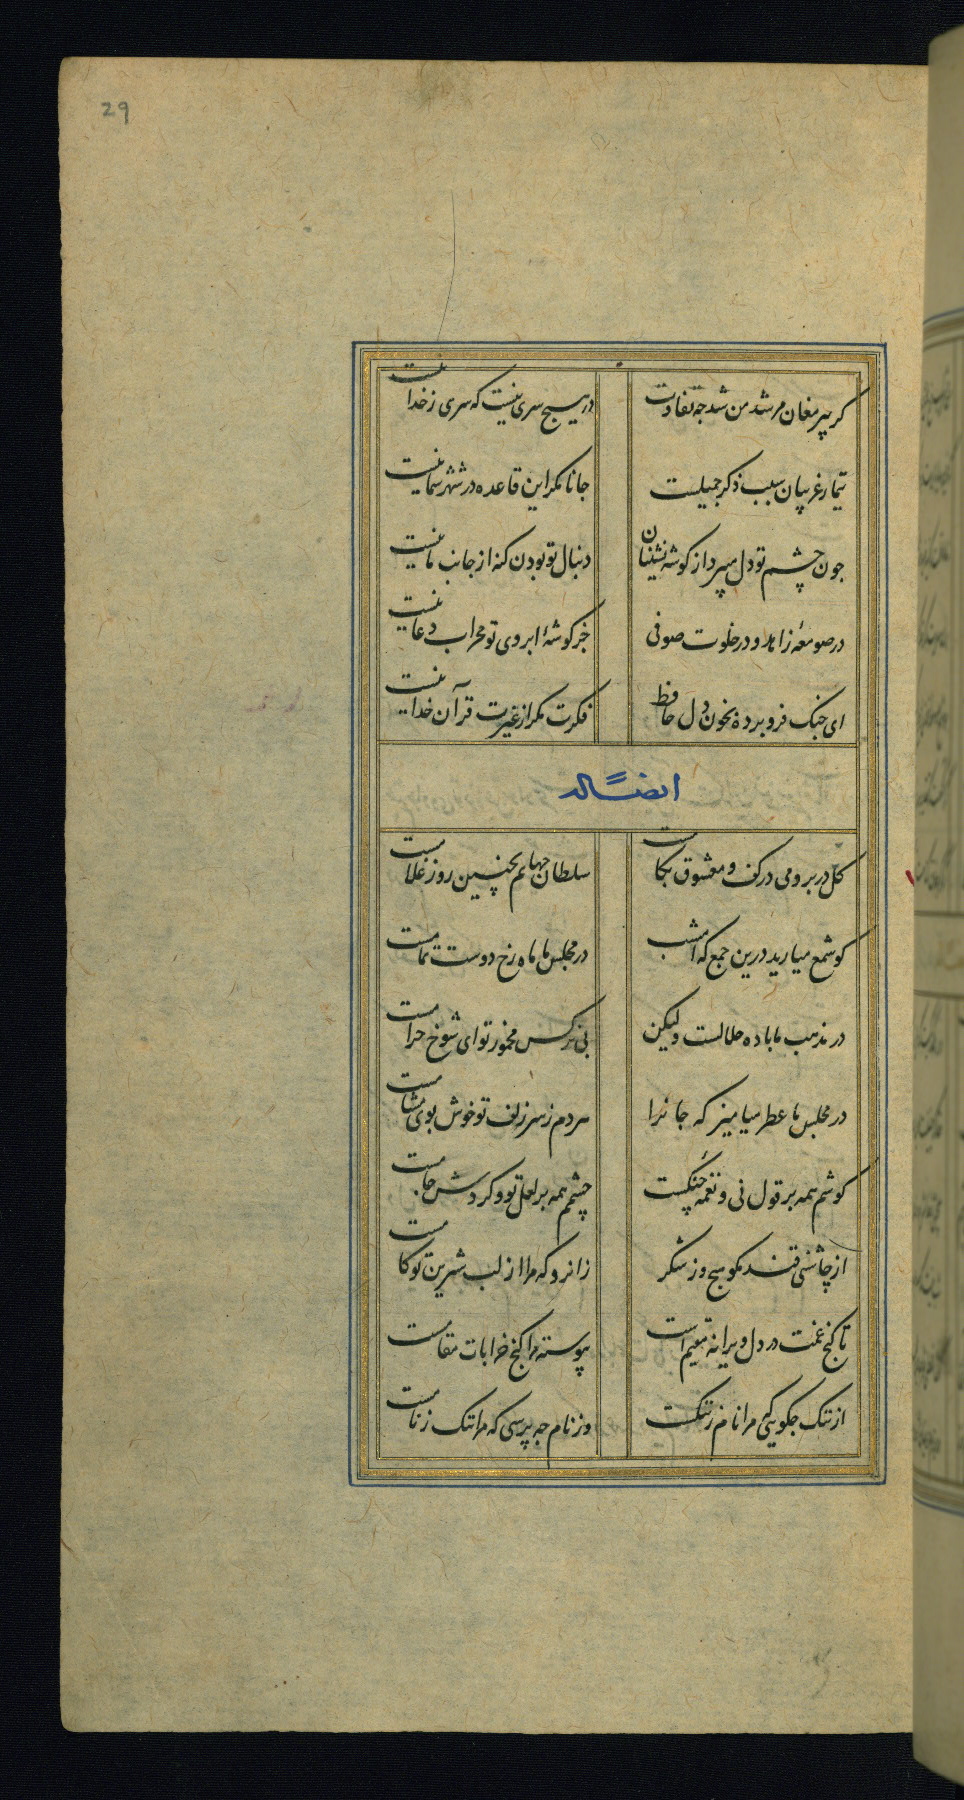 29
کر پیر مغان مرشد من شد جه تفاوت
در هیچ سری نیست که سری ز خدا نیست
تیمار غریبان سبب ذکر جمیلست
جانا مکر این قاعده در شهر شما نیست
جون چشم تو دل میبرد از کوشه نشینان
دنبال تو بودن کنه از جانب ما نیست
در صومعهٔ زاهد و در خلوت صوفی
جز کوشهٔ ابروی تو محراب دعا نیست
ای جنک فرو برده بخون دل حافظ
فکرت مکر از غیرت قرآن خدا نیست
ایضاً له
کل در بر و می در کف و معشوق بکامست
سلطان جهانم بچنین روز غلامست
کو شمع میارید درین جمع که امشب
در مجلس ما ماه رخ دوست تمامست
در مذهب ما باده حلالست ولیکن
بی نرکس مخمور تو ای شوخ حرامست
در مجلس ما عطر میامیز که جانرا
هردم ز سر زلف تو خوش بوی مشامست
کوشم همه بر قول نی و نغمهٔ چنکست
چشمم همه بر لعل تو و کردش جامست
از چاشنی قند مکو هیچ وز شکر
زانرو که مرا از لب شیرین تو کامست
تا کنج غمت در دل ویرانه مقیم است
پیوسته مرا کنج خرابات مقامست
از ننک جکویی که مرا نام ز ننکست
وز نام جه پرسی که مرا ننک ز نامست